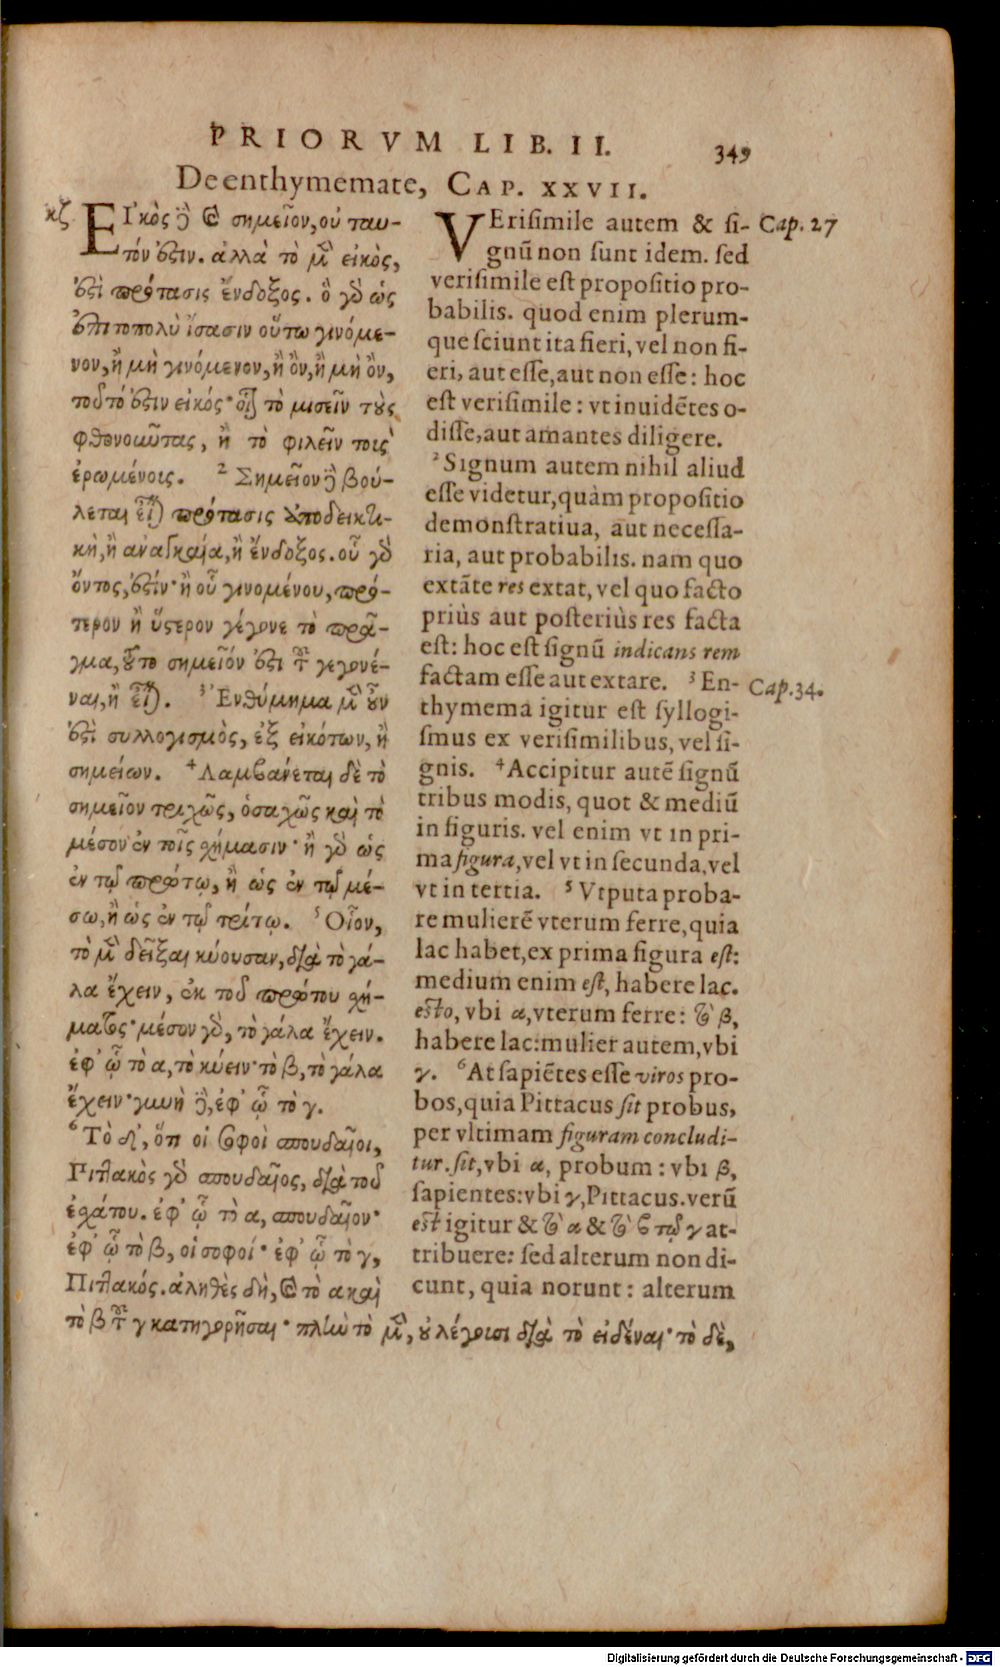 PRIORVM LIB. II.
349
De enthymemate, CAP. XXVII.
κζ
ΕΙ᾿κὸς δὲ καὶ σημεῖον, οὐ ταυ-
τόν ἐστιν. ἀλλὰ τὸ μὲν εἰκὸς,
ἐστὶ πρότασις ἔνδοξος. ὃ γὰρ ὡς
ἐπιτοπολὺ ἴσασιν οὕτω γινόμε-
νον, ἢ μὴ γινόμενον, ἢ ὂν, ἢ μὴ ὂν,
τοῦτό ἐστιν εἰκός· οἷον τὸ μισεῖν τοὺς
φθονοῦντας, ἢ τὸ φιλεῖν τοῖς
ἐρωμένοις. ² Σημεῖον δὲ βού-
λεται εἶναι πρότασις ἀποδεικτι-
κὴ, ἢ ἀναγκαία, ἢ ἔνδοξος. οὗ γὰρ
ὄντος, ἐστίν· ἢ οὗ γινομένου, πρό-
τερον ἢ ὕστερον γέγονε τὸ πρᾶ-
γμα, τοῦτο σημεῖόν ἐστι τοῦ γεγονέ-
ναι, ἢ εἶναι. ³ Ἐνθύμημα μὲν οὖν
ἐστὶ συλλογισμὸς, ἐξ εἰκότων, ἢ
σημείων. ⁴ Λαμβάνεται δὲ τὸ
σημεῖον τριχῶς, ὁσαχῶς καὶ τὸ
μέσον ἐν τοῖς σχήμασιν· ἢ γὰρ ὡς
ἐν τῷ πρώτῳ, ἢ ὡς ἐν τῷ μέ-
σῳ, ἢ ὡς ἐν τῷ τρίτῳ. ⁵ Οἷον,
τὸ μὲν δεῖξαι κύουσαν, διὰ τὸ γά-
λα ἔχειν, ἐκ τοῦ πρώτου σχή-
ματος· μέσον γὰρ, τὸ γάλα ἔχειν.
ἐφ' ᾧ τὸ α, τὸ κύειν· τὸ β, τὸ γάλα
ἔχειν· γυνὴ δὲ, ἐφ' ᾧ τὸ γ.
⁶ Τὸ δ', ὅτι οἱ σοφοὶ σπουδαῖοι,
Πιττακὸς γὰρ σπουδαῖος, διὰ τοῦ
ἐσχάτου. ἐφ' ᾧ τὸ α, σπουδαῖον·
ἐφ' ᾧ τὸ β, οἱ σοφοί· ἐφ' ᾧ τὸ γ,
Πιττακός. ἀληθὲς δὴ, καὶ τὸ α καὶ
τὸ β τοῦ γ κατηγορῆσαι· πλὴν τὸ μὲν, οὐ λέγουσι διὰ τὸ εἰδέναι· τὸ δὲ,
VErisimile autem & si-
Cap. 27
gnū non sunt idem. sed
verisimile est propositio pro-
babilis. quod enim plerum-
que sciunt ita fieri, vel non fi-
eri, aut esse, aut non esse: hoc
est verisimile: vt inuidētes o-
disse, aut amantes diligere.
² Signum autem nihil aliud
esse videtur, quàm propositio
demonstratiua, aut necessa-
ria, aut probabilis. nam quo
extāte res extat, vel quo facto
priùs aut posteriùs res facta
est: hoc est signū indicans rem
factam esse aut extare. ³ En-
Cap. 34.
thymema igitur est syllogi-
smus ex verisimilibus, vel si-
gnis. ⁴ Accipitur autē signū
tribus modis, quot & mediū
in figuris. vel enim vt in pri-
ma figura, vel vt in secunda, vel
vt in tertia. ⁵ Vtputa proba-
re mulierē vterum ferre, quia
lac habet, ex prima figura est:
medium enim est, habere lac.
esto, vbi α, vterum ferre: τὸ β,
habere lac: mulier autem, vbi
γ. ⁶ At sapiētes esse viros pro-
bos, quia Pittacus sit probus,
per vltimam figuram concludi-
tur. sit, vbi α, probum: vbi β,
sapientes: vbi γ, Pittacus. verū
est igitur & τὸ α & τὸ β τῷ γ at-
tribuere: sed alterum non di-
cunt, quia norunt: alterum
Digitalisierung gefördert durch die Deutsche Forschungsgemeinschaft - DFG